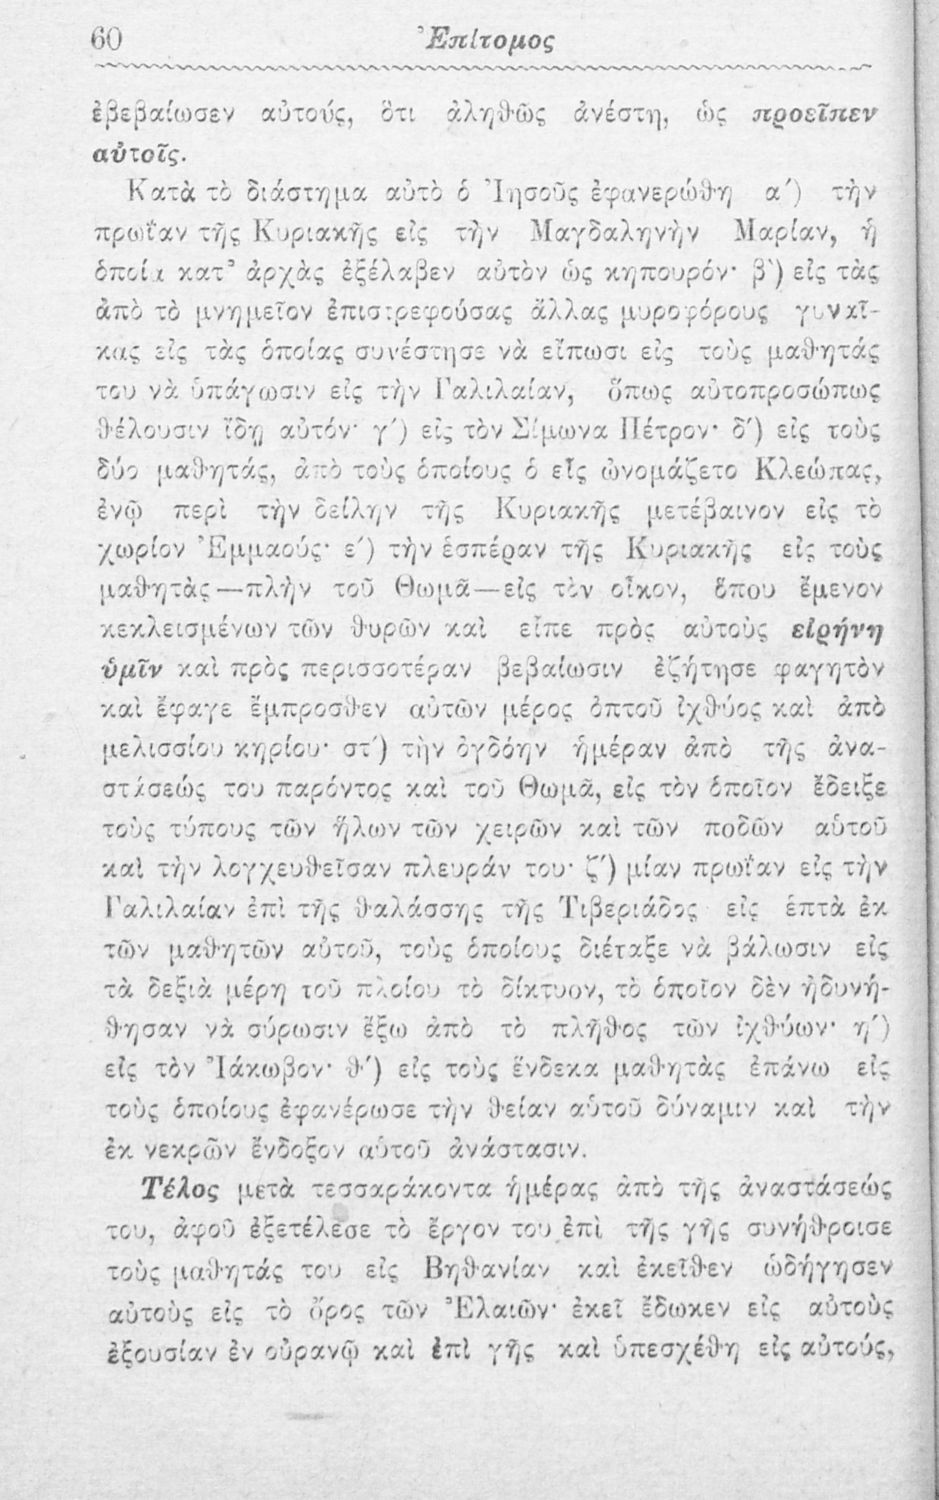 60 Ἐπίτομος
ἐβεβαίωσεν αὐτούς, ὅτι ἀληθῶς ἀνέστη, ὡς προεῖπεν
αὐτοῖς.
Κατὰ τὸ διάστημα αὐτὸ ὁ Ἰησοῦς ἐφανερώθη α΄) τὴν
πρωΐαν τῆς Κυριακῆς εἰς τὴν Μαγδαληνὴν Μαρίαν, ἡ
ὁποία κατ' ἀρχὰς ἐξέλαβεν αὐτὸν ὡς κηπουρόν· β΄) εἰς τὰς
ἀπὸ τὸ μνημεῖον ἐπιστρεφούσας ἄλλας μυροφόρους γυναῖ-
κας εἰς τὰς ὁποίας συνέστησε νὰ εἴπωσι εἰς τοὺς μαθητάς
του νὰ ὑπάγωσιν εἰς τὴν Γαλιλαίαν, ὅπως αὐτοπροσώπως
θέλουσιν ἴδῃ αὐτόν· γ΄) εἰς τὸν Σίμωνα Πέτρον· δ΄) εἰς τοὺς
δύο μαθητάς, ἀπὸ τοὺς ὁποίους ὁ εἷς ὠνομάζετο Κλεώπας,
ἐνῷ περὶ τὴν δείλην τῆς Κυριακῆς μετέβαινον εἰς τὸ
χωρίον Ἐμμαούς· ε΄) τὴν ἑσπέραν τῆς Κυριακῆς εἰς τοὺς
μαθητὰς—πλὴν τοῦ Θωμᾶ—εἰς τὸν οἶκον, ὅπου ἔμενον
κεκλεισμένων τῶν θυρῶν καὶ εἶπε πρὸς αὐτοὺς εἰρήνη
ὑμῖν καὶ πρὸς περισσοτέραν βεβαίωσιν ἐζήτησε φαγητὸν
καὶ ἔφαγε ἔμπροσθεν αὐτῶν μέρος ὀπτοῦ ἰχθύος καὶ ἀπὸ
μελισσίου κηρίου· στ΄) τὴν ὀγδόην ἡμέραν ἀπὸ τῆς ἀνα-
στάσεώς του παρόντος καὶ τοῦ Θωμᾶ, εἰς τὸν ὁποῖον ἔδειξε
τοὺς τύπους τῶν ἥλων τῶν χειρῶν καὶ τῶν ποδῶν αὑτοῦ
καὶ τὴν λογχευθεῖσαν πλευράν του· ζ΄) μίαν πρωΐαν εἰς τὴν
Γαλιλαίαν ἐπὶ τῆς θαλάσσης τῆς Τιβεριάδος εἰς ἑπτὰ ἐκ
τῶν μαθητῶν αὐτοῦ, τοὺς ὁποίους διέταξε νὰ βάλωσιν εἰς
τὰ δεξιὰ μέρη τοῦ πλοίου τὸ δίκτυον, τὸ ὁποῖον δὲν ἠδυνή-
θησαν νὰ σύρωσιν ἔξω ἀπὸ τὸ πλῆθος τῶν ἰχθύων· η΄)
εἰς τὸν Ἰάκωβον· θ΄) εἰς τοὺς ἕνδεκα μαθητὰς ἐπάνω εἰς
τοὺς ὁποίους ἐφανέρωσε τὴν θείαν αὑτοῦ δύναμιν καὶ τὴν
ἐκ νεκρῶν ἔνδοξον αὑτοῦ ἀνάστασιν.
Τέλος μετὰ τεσσαράκοντα ἡμέρας ἀπὸ τῆς ἀναστάσεώς
του, ἀφοῦ ἐξετέλεσε τὸ ἔργον του ἐπὶ τῆς γῆς συνήθροισε
τοὺς μαθητάς του εἰς Βηθανίαν καὶ ἐκεῖθεν ὡδήγησεν
αὐτοὺς εἰς τὸ ὄρος τῶν Ἐλαιῶν· ἐκεῖ ἔδωκεν εἰς αὐτοὺς
ἐξουσίαν ἐν οὐρανῷ καὶ ἐπὶ γῆς καὶ ὑπεσχέθη εἰς αὐτούς,